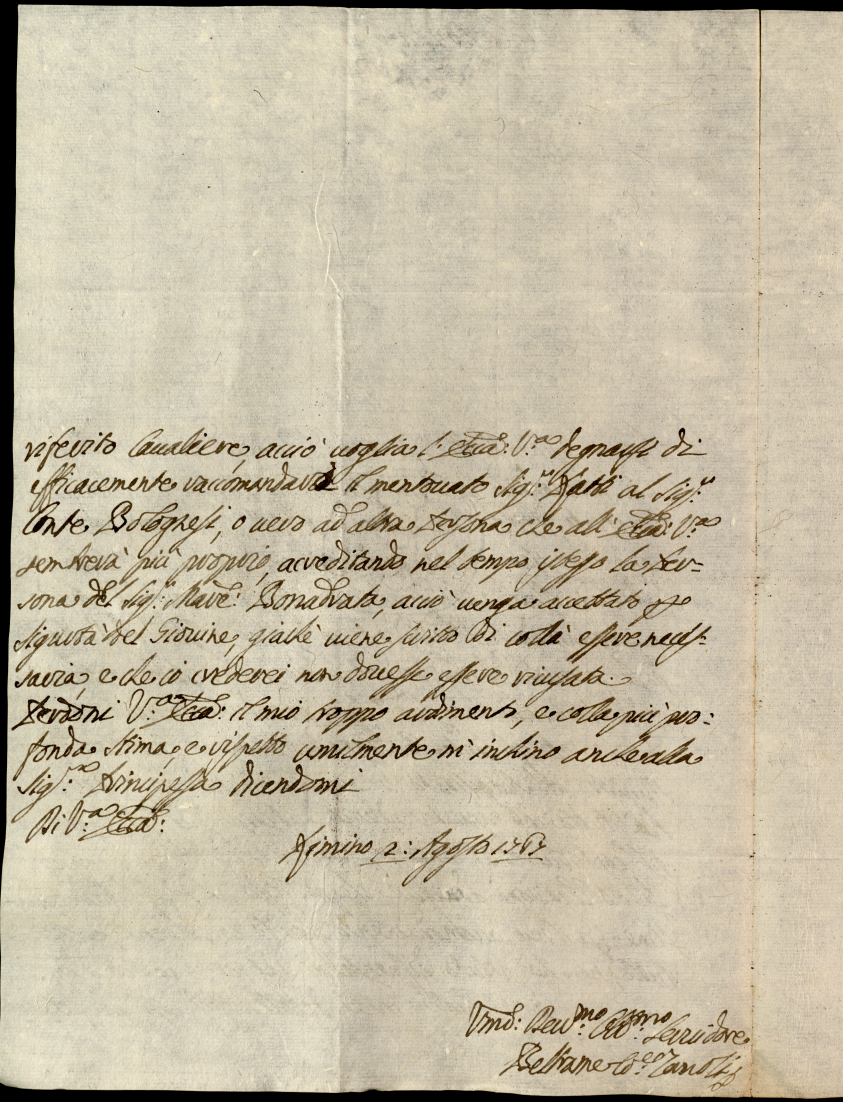 riferito Cavaliere, acciò voglia l'Ecca: V.ra degnarsi di
efficacemente raccomandare il mentovato Sig.r Fatti al Sig.r
Conte Bolognesi, o vero ad altra Persona che all' Ecca: V.ra
sembrerà più proprio, accreditando nel tempo istesso la Per-
sona del Sig.r March: Bonadrata, acciò venga accettato per
sigurtà del Giovine, giachè viene scritto di collà essere neces-
saria, e che ciò crederei non dovesse essere ricusata.
Perdoni V.ra Ecca: il mio troppo ardimento, e colla più pro:
fonda stima, e rispetto umilmente m'inchino anche alla
Sig.ra Principessa dicendomi
Di V.ra Ecca:
Rimino 2: Agosto 1767
Umo: Devmo Obbmo Servidore
Beltrame Co: Zanoli